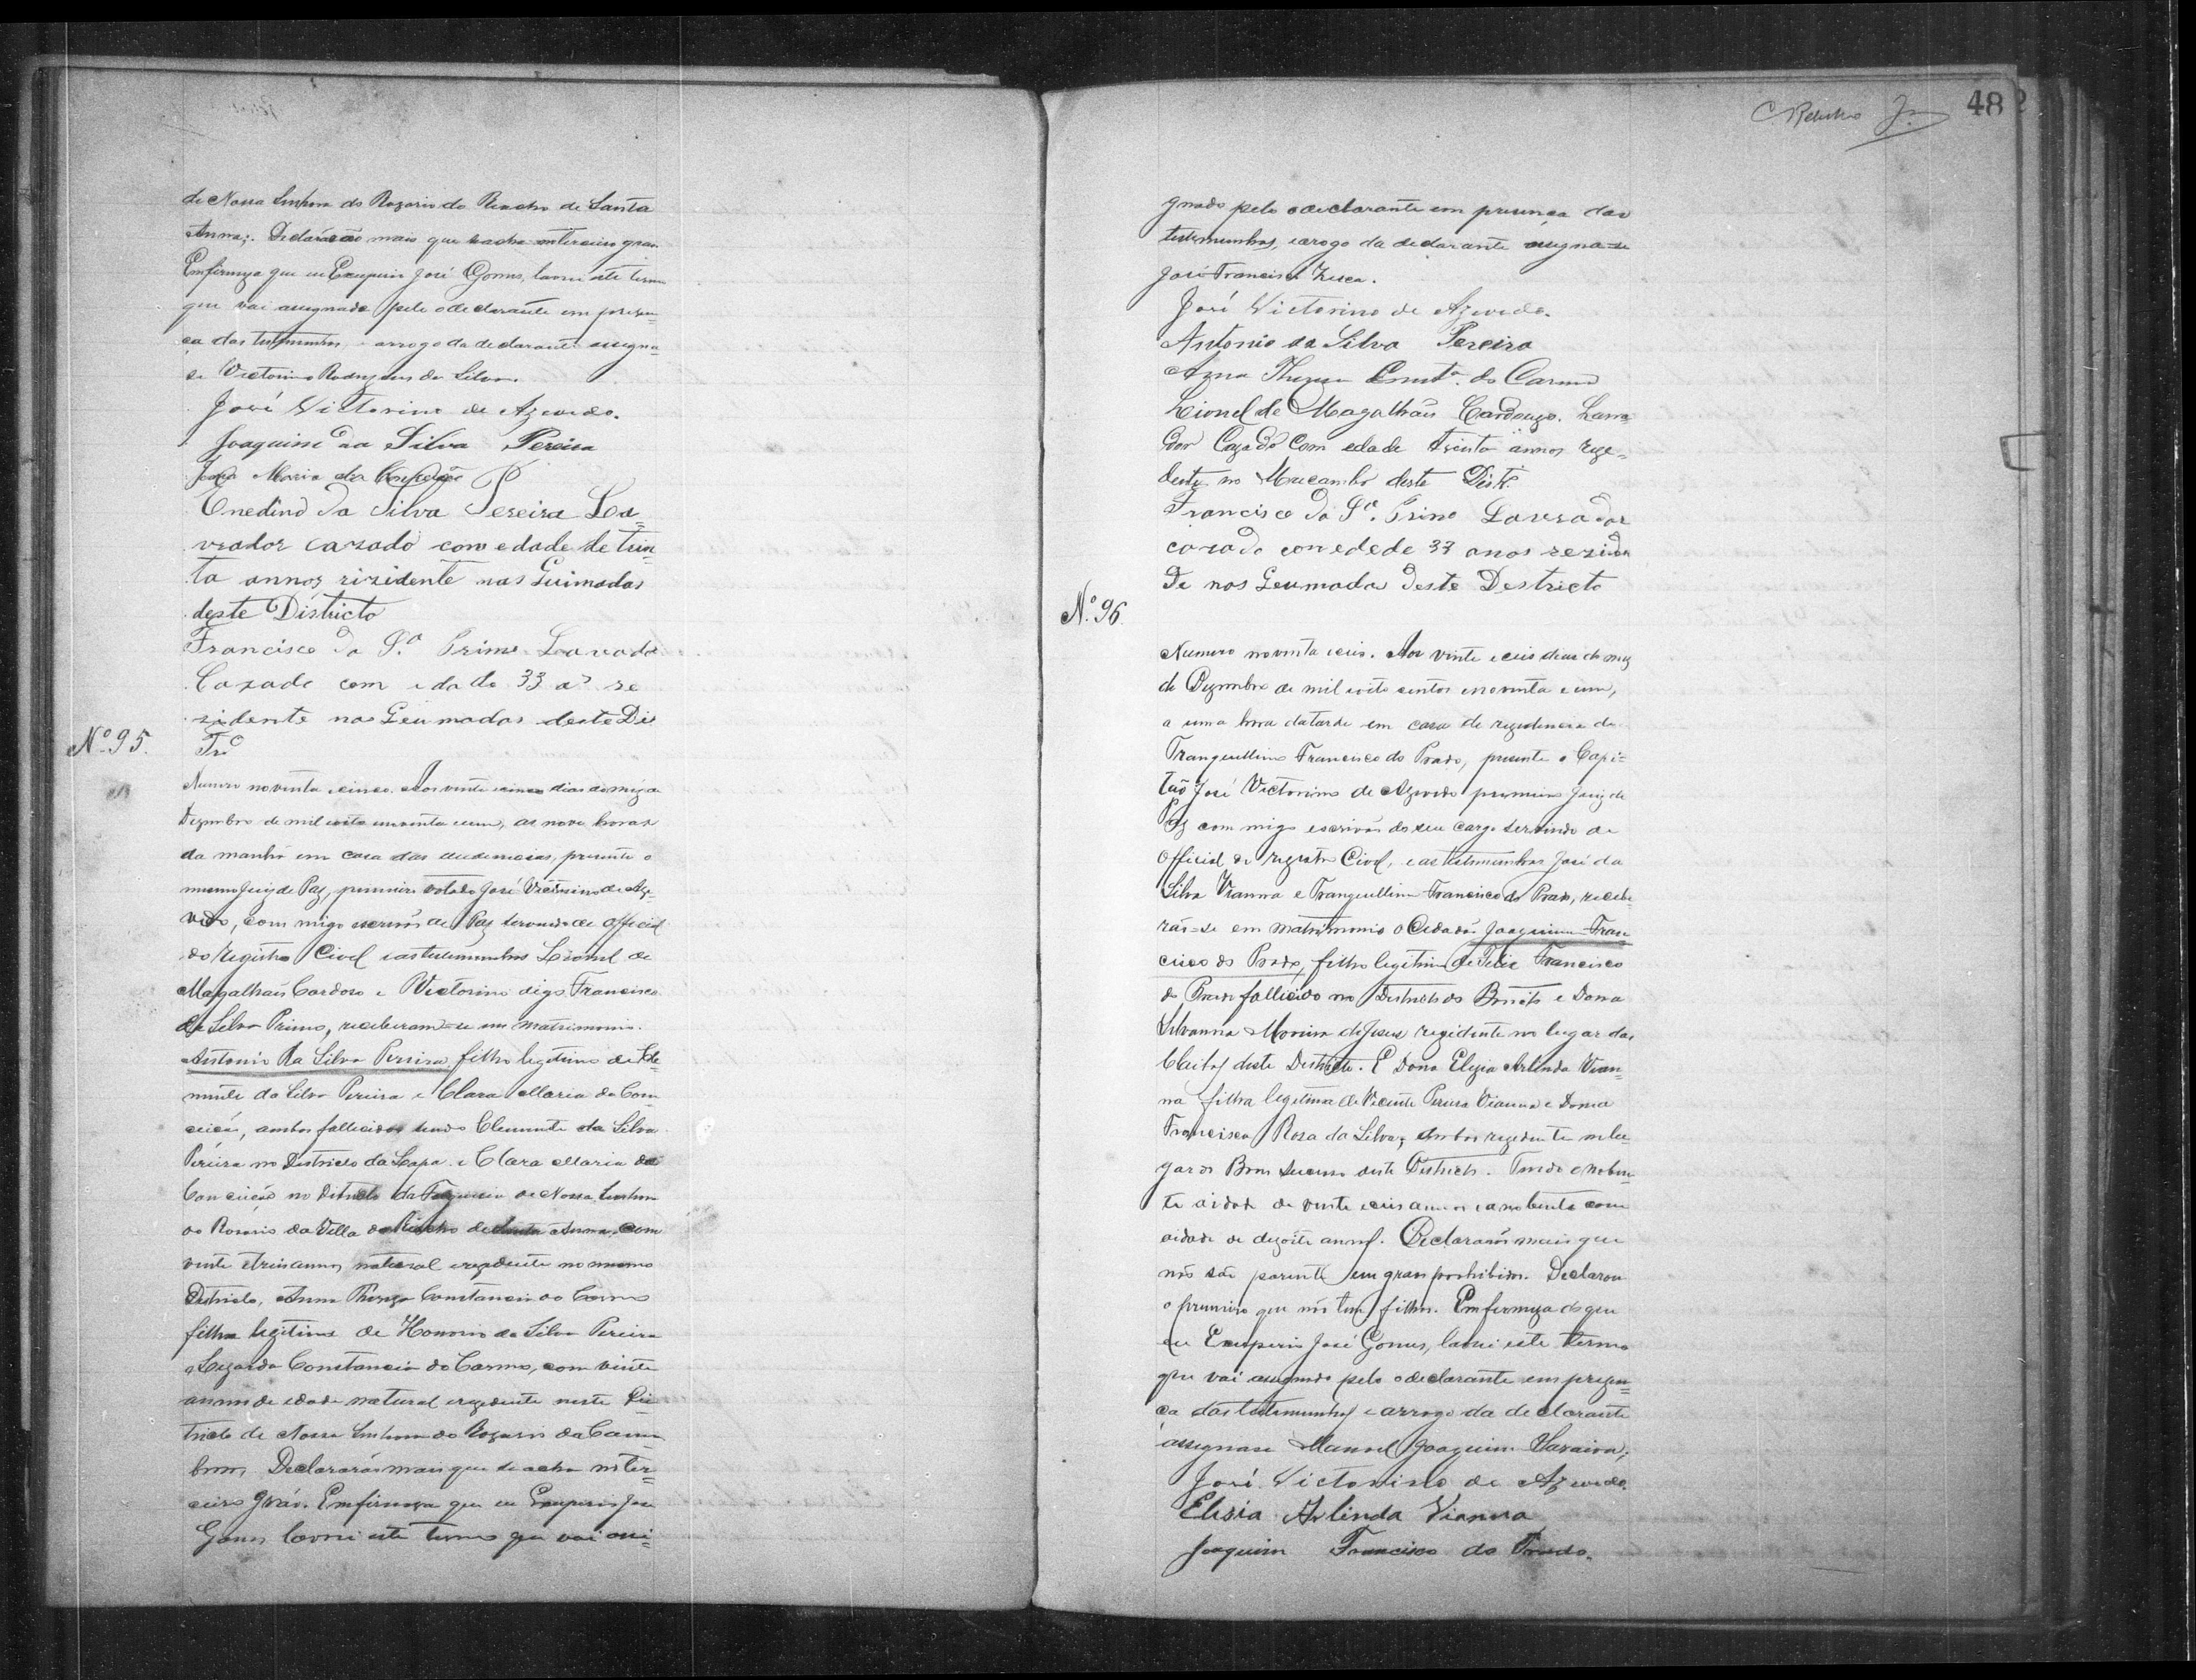 de Nossa Senhora do Rozario do Riacho de Santa
Anna;. Declarárão mais que se acha em terceiro gráo
Em firmeza que eu Exuperio José Gomes, lavrei este termo
que vai assignado pelo o declarante em presen=
ça das testemunhas e arrogo da declarante assigna-
se Victorino Rodrigues da Silva.
José Victorino de Azevedo.
Joaquim da Silva Pereira
Maria da Conceição
Enedino da Silva Pereira La=
vrador cazado com edade de trin
ta annos rizidente nas Guimadas
deste Districto
Francisco da Sª Primo Lavrador
Cazado com idade 33 as re
zidente nas Geumadas deste Dis
Trº
Nº 95.
Numero noventa e cinco. Aos vinte e cinco dias do mez de
Dezembro de mil oito e noventa e um, as nove horas
da manhã em casa das audiencias, presente o
mesmo Juiz de Paz, primeiro votado José Victorino de Aze-
vedo, com migo escrivão de Paz servindo de official
do registro Civel e as testemunhas Leonel de
Magalhães Cardoso e Victorino digo Francisco
da Silva Primo, receberam-se em matrimonio.
Antonio da Silva Pereira filho legitimo de Cle-
mente da Silva Pereira e Clara Maria da Con
ceicão, ambos fallecidos sendo Clemente da Silva
Pereira no Districto da Lapa. e Clara Maria da
Conceição no Districto da Freguesia de Nossa Senhora
do Rosario da Villa do Riacho de Santa Anna, com
vinte e treis annos natural e rezidente no mesmo
Districto, Anna Thereza Constancia do Carmo
filha legitima de Honorio da Silva Pereira
e Constancia do Carmo, com vinte
annos de edade natural e rezidente neste Dis
tricto de Nossa Senhora do Rozario da Cana
brava, Declararão mais que se acha no ter-
ceiro gráo. Em firmeza que eu Exuperio José
Gomes lavrei este termo que vai assi=
48
gnado pelo o declarante em presença das
testemunhas, e arogo da declarante assigna-se
José Francisco.
José Victorino de Azevedo.
Antonio da Silva Pereira
Anna Thereza Constª do Carmo
Lionel de Magalhães Cardouzo. Lavra
dor Cazado Com edade trinta annos reze=
dente no Mucambo deste Distr.
Francisco da Sª. Primo Lavrador
cazado con edede 33 anos rezidn
De nos Geumadas deste Destricto
Nº. 96.
Numero noventa e ceis. Aos vinte e ceis dias do mez
de Dezembro de mil e oito centos e noventa e um,
a uma hora da tarde em casa de rezidencia de
Tranquillino Francisco do Prado, presente o Capi=
tão José Victorino de Azevedo primeiro Juiz de
Paz com migo escrivão do seu cargo servindo de
Official do registro Civel, e as testemunhas José da
Silva Vianna e Tranquillino Francisco do Prado, recebe-
rão-se em matrimonio o Cidadão Joaquim Fran
cisco do Prado, filho legitimo de Felix Francisco
do Prado fallicido no Districto do Bonito e Dona
Silvanna Moreira de Jesus rezidente no lugar das
deste Districto. E Dona Elizia Arlinda Vian=
na filha legitima de Vicente Pereira Vianna e Dona
Francisca Rosa da Silva; ambos rezidente no lu-
gar do Bom Sucesso deste Districto. Tendo o noben-
te aidade de vinte e ceis annos e a nobente com
aidade de dezoito annos. Declararão mais que
não são parente em grao prohibido. Declarou
o primeiro que não tem filhos. Em firmeza do que
eu Exuperio José Gomes, lavrei este termo
que vai assignado pelo o declarante em prezen=
ça das testemunhas e arrogo da declarante
assignase Manoel Joaquim Saraiva;
José Victorino de Azevedo.
Elisia Arlinda Vianna
Joaquim Francisco do Prado.